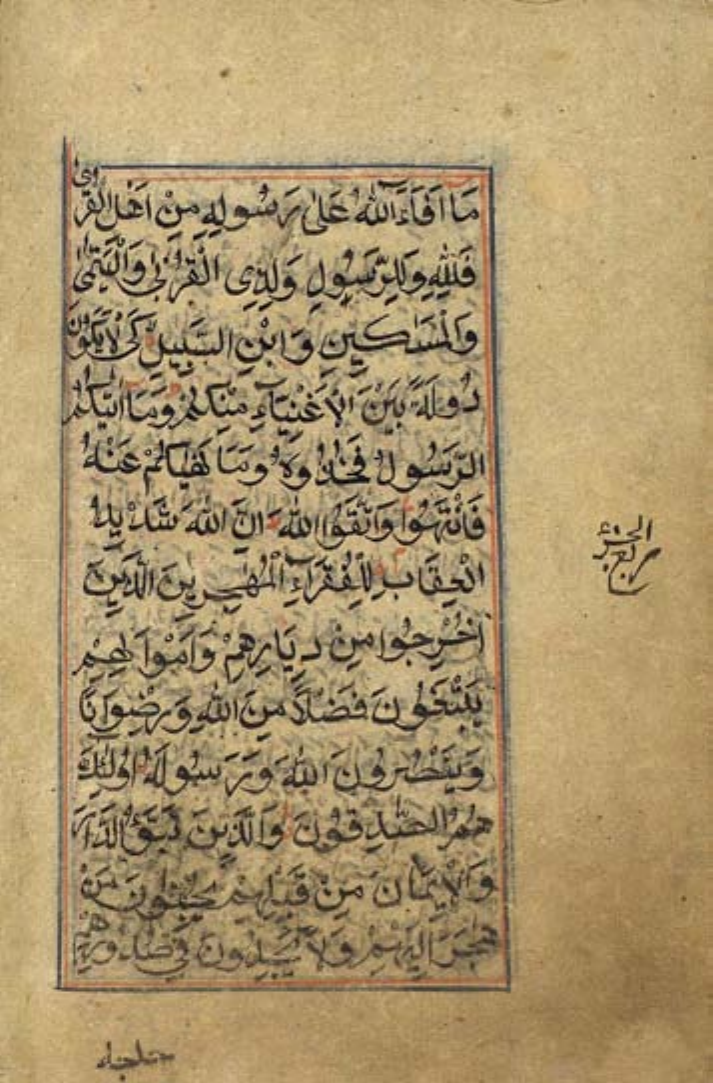 مَا اَفَاءَ اللهُ عَلٰى رَسُولِهٖ مِنْ اَهْلِ الْقُرٰى
فَلِلّٰهِ وَلِلرَّسُولِ وَلِذِى الْقُرْبٰى وَالْيَتٰمٰى
وَالْمَسٰكِينِ وَابْنِ السَّبِيلِ كَىْ لَا يَكُونَ
دُولَةً بَيْنَ الْاَغْنِيَاءِ مِنْكُمْ وَمَا اٰتٰيكُمُ
الرَّسُولُ فَخُذُوهُ وَمَا نَهٰيكُمْ عَنْهُ
فَانْتَهُوا وَاتَّقُوا اللهَ اِنَّ اللهَ شَدِيدُ
الْعِقَابِ لِلْفُقَرَاءِ الْمُهٰجِرِينَ الَّذِينَ
اُخْرِجُوا مِنْ دِيَارِهِمْ وَاَمْوَالِهِمْ
يَبْتَغُونَ فَضْلًا مِنَ اللهِ وَرِضْوَانًا
وَيَنْصُرُونَ اللهَ وَرَسُولَهُ اُولٰئِكَ
هُمُ الصّٰدِقُونَ وَالَّذِينَ تَبَوَّؤُ الدَّارَ
وَالْاِيمَانَ مِنْ قَبْلِهِمْ يُحِبُّونَ مَنْ
هَاجَرَ اِلَيْهِمْ وَلَا يَجِدُونَ فِى صُدُورِهِمْ
الحزب
ربع
حاجة